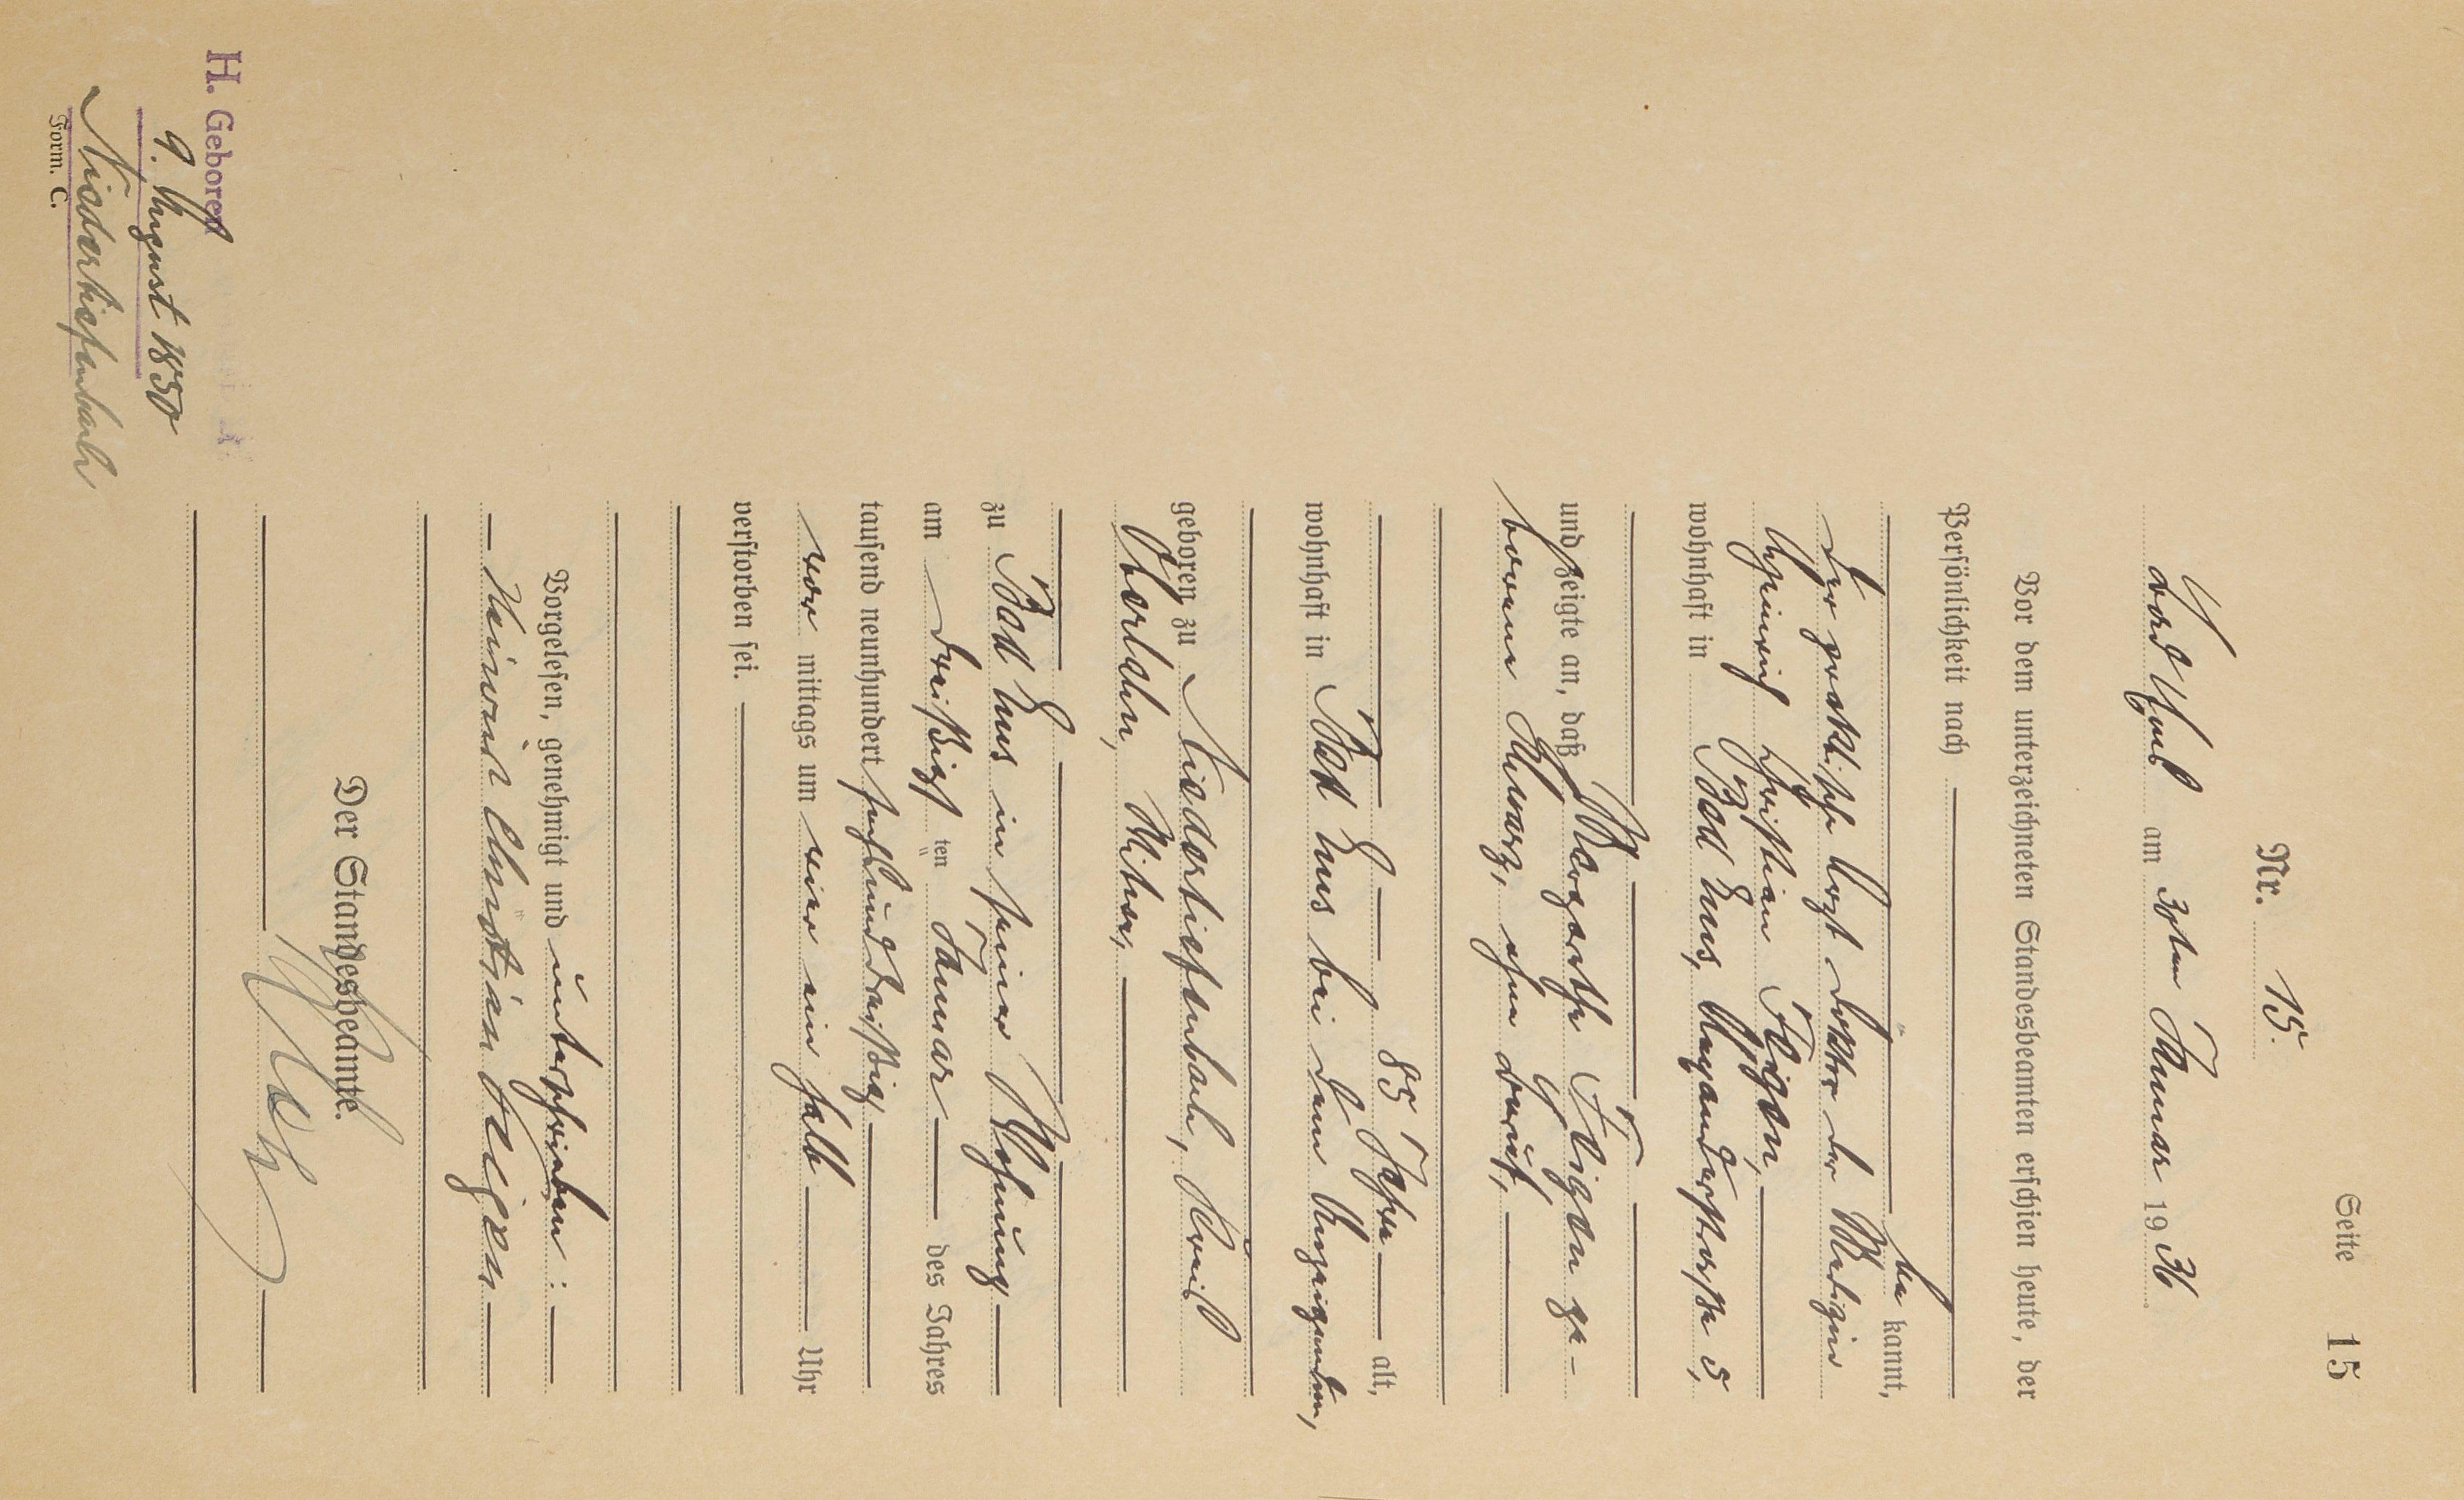 Seite 15
Nr. 15.
am 30ten Januar 1936
Vor dem unterzeichneten Standesbeamten erschien heute, der
Persönlichkeit nach
be kannt,
der praktische Arzt Doktor der Medizin
Heinrich Christian Feigen,
wohnhaft in Bad Ems,
und zeigte an, daß Margarethe Feigen ge-
borene Schwarz, ohne Beruf,
85 Jahre alt,
wohnhaft in Bad Ems bei dem Anzeigenden,
geboren zu Niedertiefenbach, Kreis
Oberlahn, Witwe,
zu Bad Ems in seiner Wohnung
am dreißigsten Januar des Jahres
tausend neunhundert sechsunddreißig
vor mittags um vier ein halb Uhr
verstorben sei.
Vorgelesen, genehmigt und unterschrieben:
Heinrich Christian Feigen
Der Standesbeamte.
H. Geboren
9. August 1850
Niedertiefenbach
Form. C.